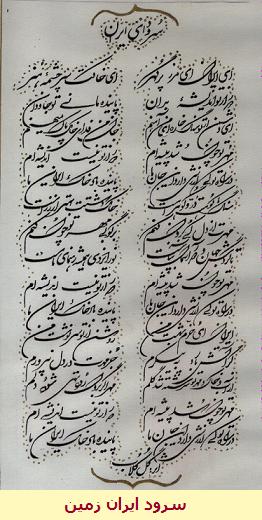 ای ایران ای مرز پر گهر	ای خاکت سرچشمه هنر
دور از تو اندیشه بدان	پاینده مانی تو جاودان
ای دشمن ار تو سنگ خاره ای من آهنم	جان من فدای خاک پاک میهنم
مهر تو چون شد پیشه ام	دور از تو نیست اندیشه ام
در راه تو کی ارزشی دارد این جان ما	پاینده باد خاک ایران ما
سنگ کوهت در و گوهر است	خاک دشتت بهتر از زر است
مهرت از دل کی برون کنم	برگو بی مهر تو چون کنم
تا گردش جهان و دور آسمان بپاست	نور ایزدی همیشه رهنمای ماست
مهر تو چون شد پیشه ام	دور از تو نیست اندیشه ام
در راه تو کی ارزشی دارد این جان ما	پاینده باد خاک ایران ما
ایران ای خرم بهشت من	روشن از تو سرنوشت من
گر آتش بارد به پیکرم	جز مهرت در دل نپرورم
از آب و خاک و مهر تو سرشته شد گلم	مهر اگر برون رود تهی شود دلم
مهر تو چون شد پیشه ام	دور از تو نیست اندیشه ام
در راه تو کی ارزشی دارد این جان ما	پاینده باد خاک ایران ما
گل گلاب
سرود ایران زمین